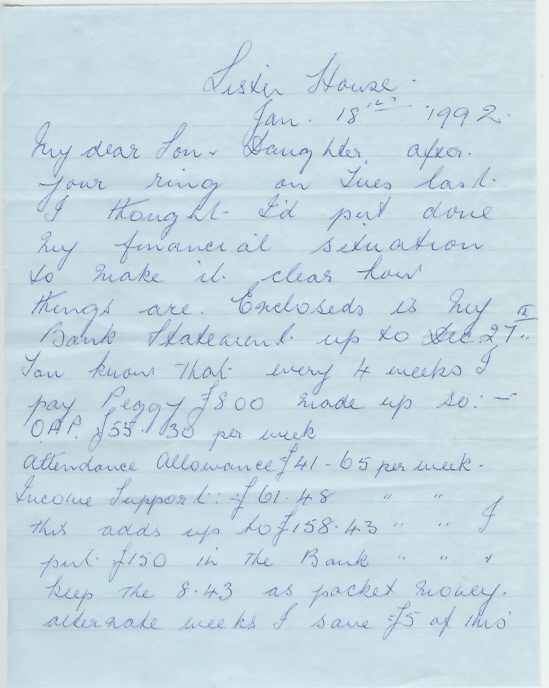 Lister House.
Jan. 18th 1992.
My dear Son & Daughter, after
your ring on Tues last.
I thought I'd put done
My financial situation
to make it clear how
things are. Encloseds is My
Bank Statement up to Dec 27th.
You know that every 4 weeks I
pay Peggy £800 made up so:-
OAP. £55.30 per week
Attendance Allowance £41-65 per week.
Income Support:- £61.48 " "
this adds up to £158.43 " " I
put £150 in the Bank " " &
keep the 8.43 as pocket money.
alternate weeks I save £5 of this